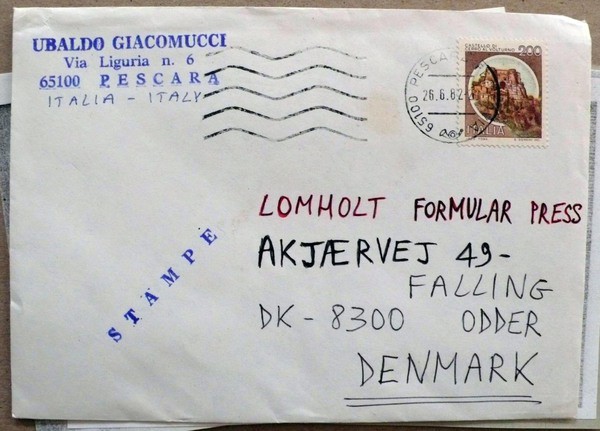 UBALDO GIACOMUCCI
Via Liguria n. 6
65100 PESCARA
ITALIA - ITALY
CASTELLO DI
CERRO AL VOLTURNO
200
ITALIA
65100 PESCARA
26.6.82
STAMPE
LOMHOLT FORMULAR PRESS
AKJÆRVEJ 49-
FALLING
DK-8300 ODDER
DENMARK